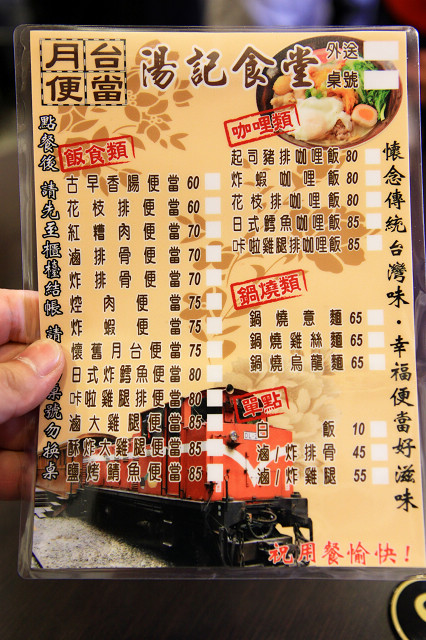 月台
便當
湯記食堂
外送
桌號
點餐後 請先至櫃檯結帳 請
桌號勿換桌
飯食類
古早香腸便當 60
花枝排便當 60
紅糟肉便當 70
滷排骨便當 70
炸排骨便當 70
焢肉便當 75
炸蝦便當 75
懷舊月台便當 75
日式炸鱈魚便當 80
咔啦雞腿排便當 80
滷大雞腿便當 85
酥炸大雞腿便當 85
鹽烤鯖魚便當 85
咖哩類
起司豬排咖哩飯 80
炸蝦咖哩飯 80
花枝排咖哩飯 80
日式鱈魚咖哩飯 85
咔啦雞腿排咖哩飯 85
鍋燒類
鍋燒意麵 65
鍋燒雞絲麵 65
鍋燒烏龍麵 65
單點
白飯 10
滷/炸排骨 45
滷/炸雞腿 55
懷念傳統台灣味·幸福便當好滋味
祝用餐愉快!